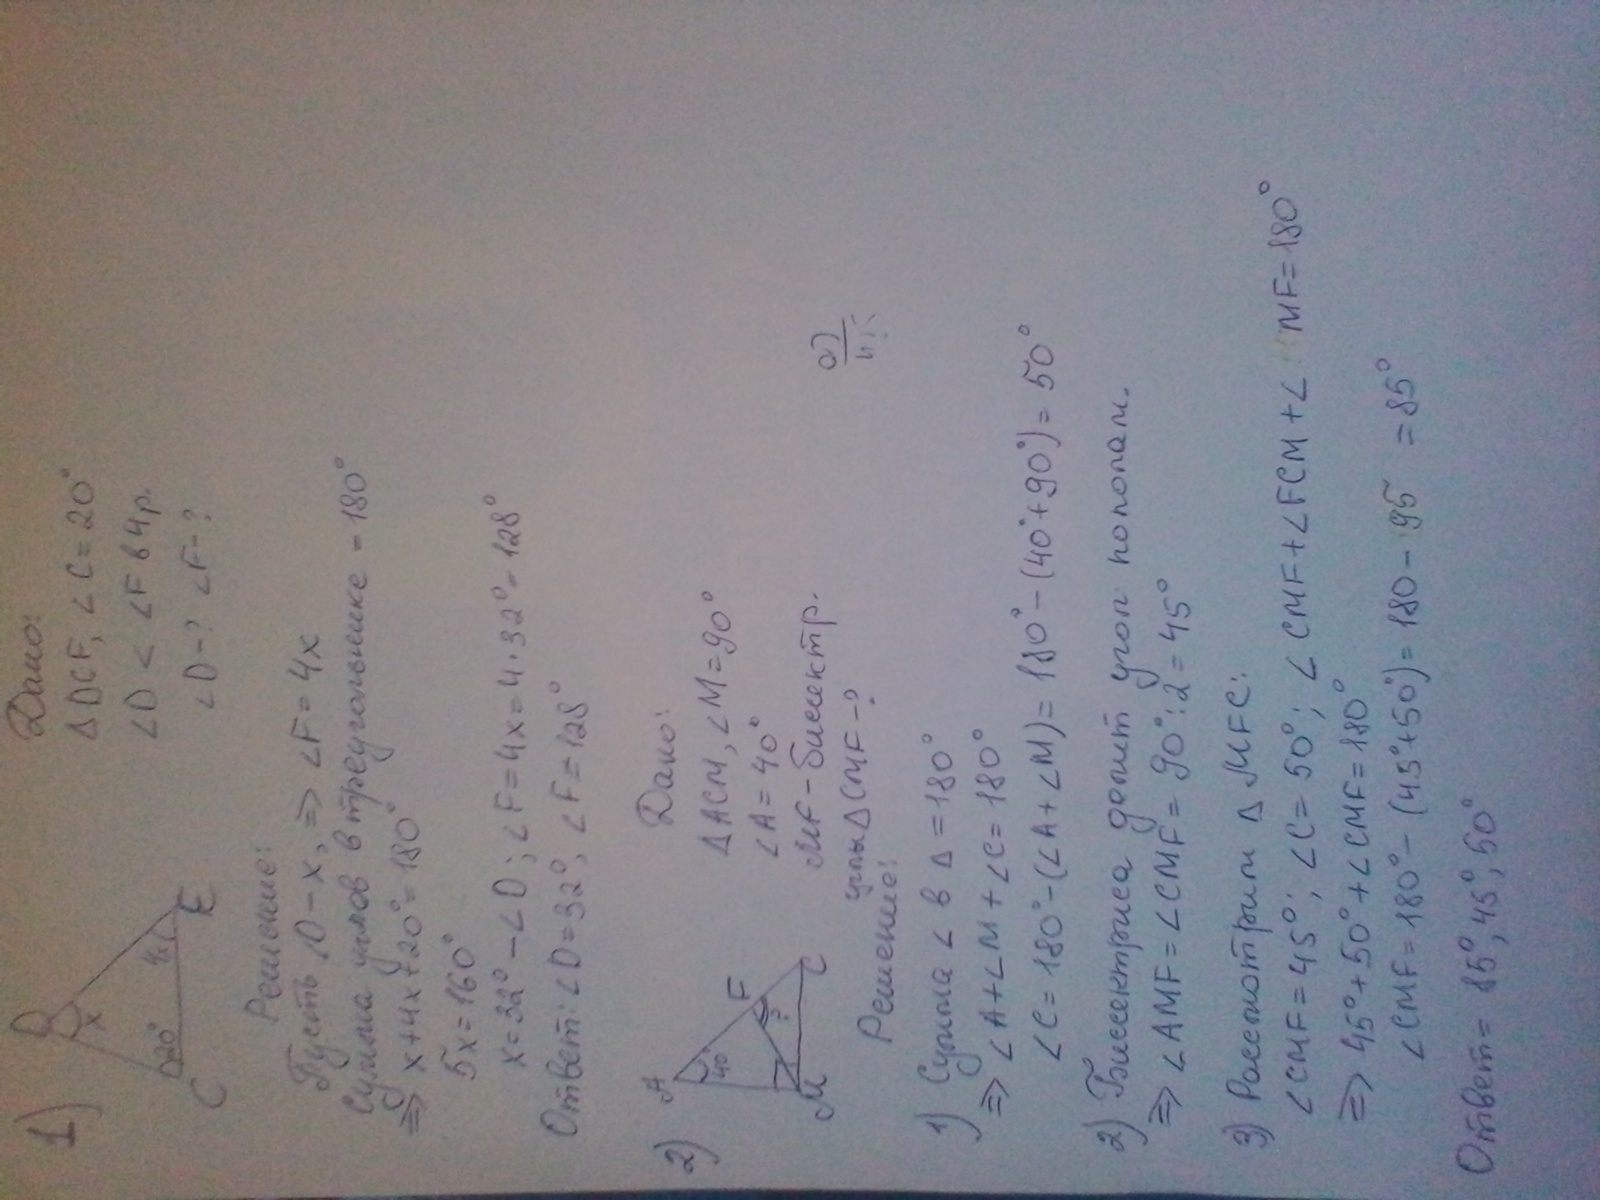 1)
D
x
20°
4x
C
E
Дано:
△DCF, ∠C=20°
∠D < ∠F в 4 р.
∠D-? ∠F-?
Решение:
Пусть ∠D-x, ⇒ ∠F=4x
Сумма углов в треугольнике - 180°
⇒ x+4x+20°=180°
5x=160°
x=32° - ∠D; ∠F=4x=4·32°=128°
Ответ: ∠D=32°, ∠F=128°
2)
A
40
F
?
M
C
Дано:
△ACM, ∠M=90°
∠A=40°
MF-биссектр.
углы △CMF-?
Решение:
1) Сумма ∠ в △=180°
⇒ ∠A+∠M+∠C=180°
∠C=180°-(∠A+∠M)=180°-(40°+90°)=50°
2) Биссектриса делит угол пополам.
⇒ ∠AMF=∠CMF=90°:2=45°
3) Рассмотрим △MFC:
∠CMF=45°; ∠C=50°; ∠CMF+∠FCM+∠ MF=180°
⇒ 45°+50°+∠CMF=180°
∠CMF=180°-(45°+50°)=180-95 =85°
Ответ= 85°, 45°, 50°